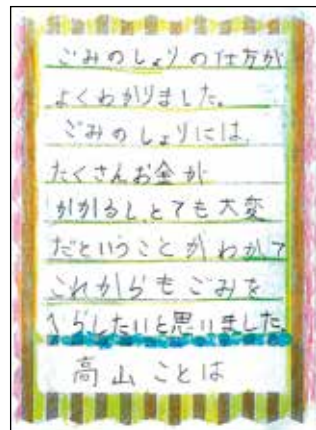 ごみのしょりの仕方が
よくわかりました。
ごみのしょりには、
たくさんお金が
かかるし、とても大変
だということがわかって
これからもごみを
へらしたいと思いました。
高山ことは